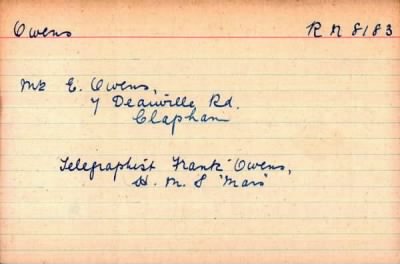 Owens R N 8183
Mr E. Owens,
7 Deauville Rd.
Clapham
Telegraphist Frank Owens,
H. M. S "Mars"